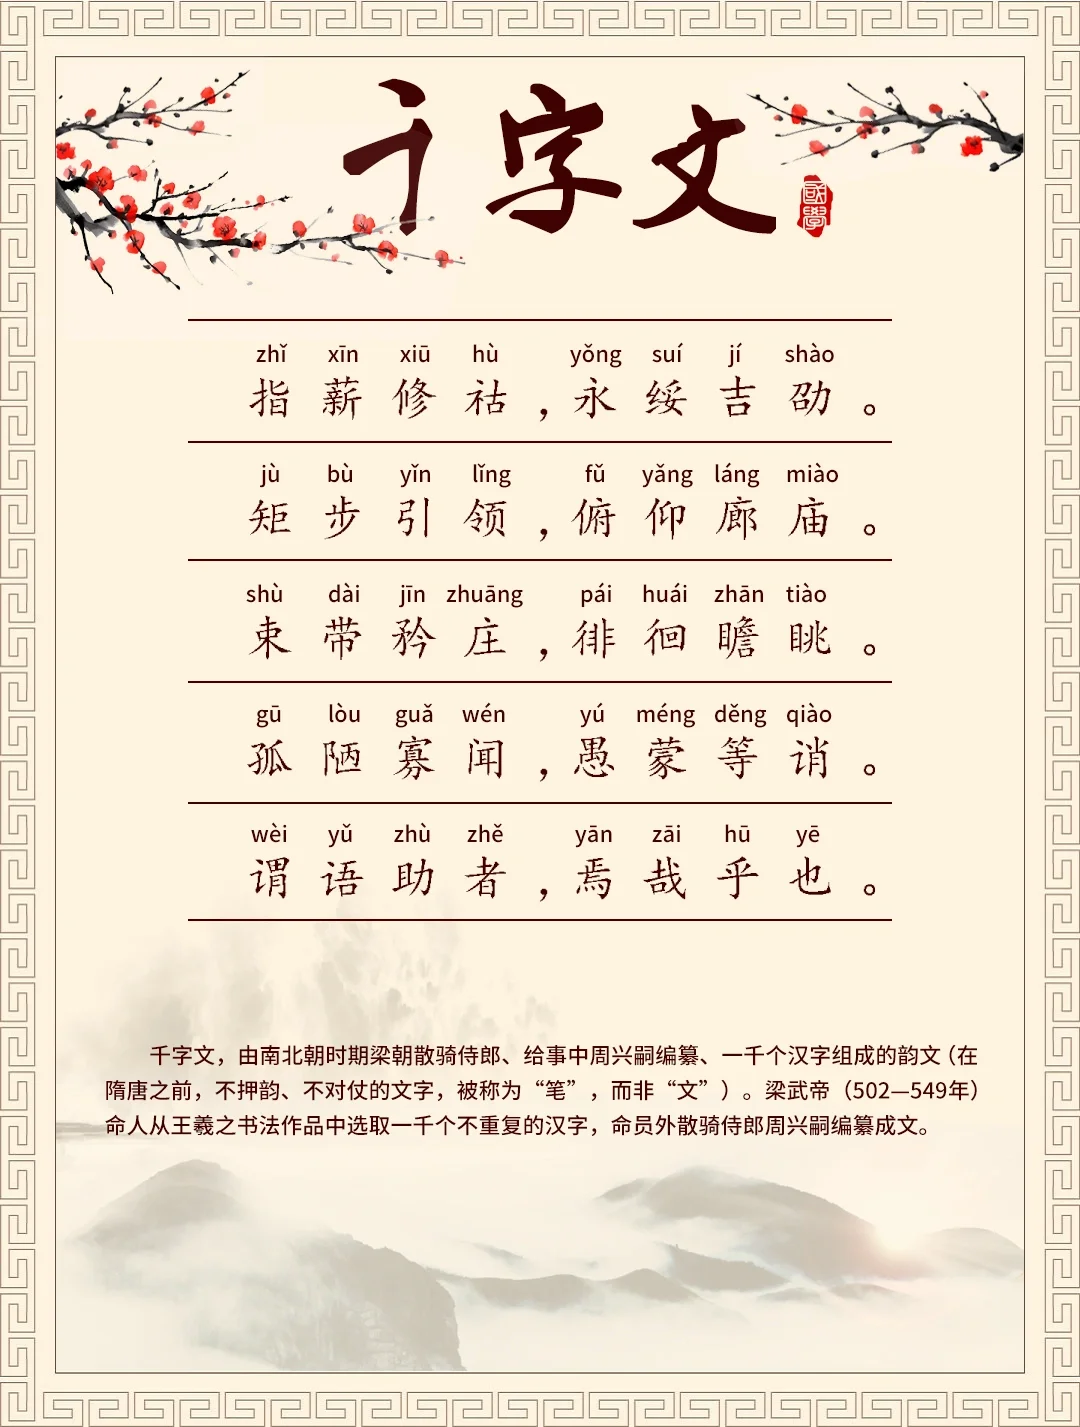 千字文
國學
zhǐ xīn xiū hù yǒng suí jí shào
指薪修祜，永绥吉劭。
jù bù yǐn lǐng fǔ yǎng láng miào
矩步引领，俯仰廊庙。
shù dài jīn zhuāng pái huái zhān tiào
束带矜庄，徘徊瞻眺。
gū lòu guǎ wén yú méng děng qiào
孤陋寡闻，愚蒙等诮。
wèi yǔ zhù zhě yān zāi hū yē
谓语助者，焉哉乎也。
千字文，由南北朝时期梁朝散骑侍郎、给事中周兴嗣编纂、一千个汉字组成的韵文（在
隋唐之前，不押韵、不对仗的文字，被称为“笔”，而非“文”）。梁武帝（502—549年）
命人从王羲之书法作品中选取一千个不重复的汉字，命员外散骑侍郎周兴嗣编纂成文。